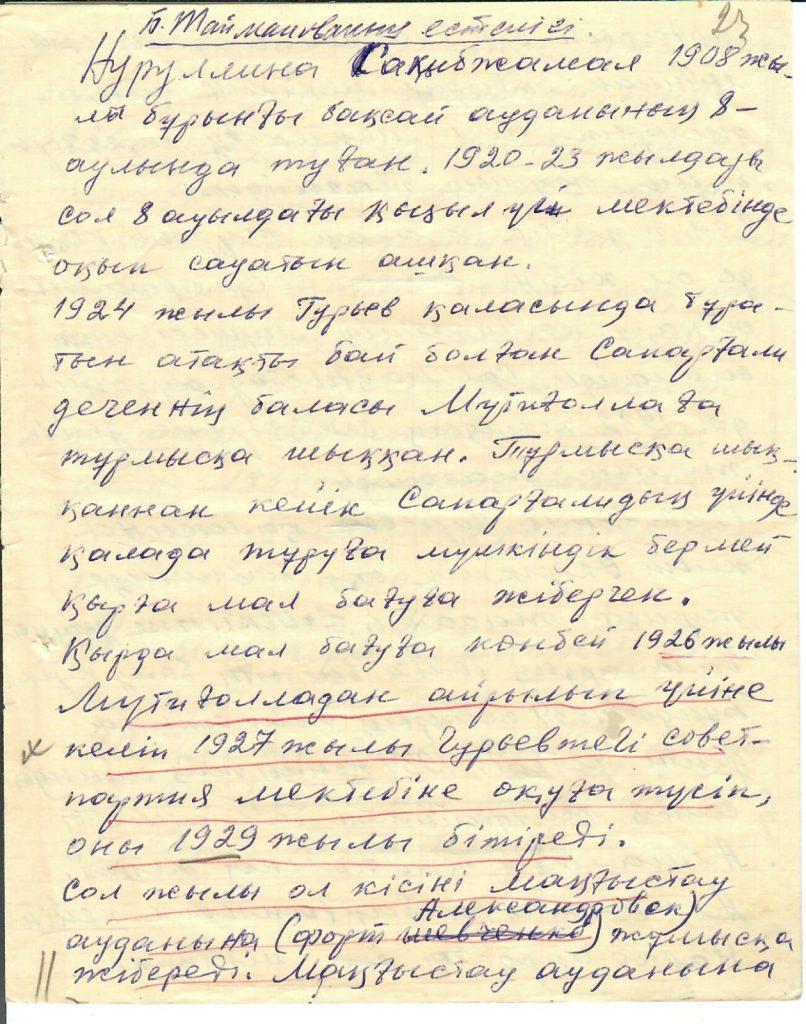 23
Б. Таймановтың естелігі
Нуруллина Сақыбжамал 1908 жы-
лы бұрынғы бақсай ауданының 8-
аулында туған. 1920-23 жылдары
сол 8 ауылдағы қызыл үй мектебінде
оқып сауатын ашқан.
1924 жылы Гурьев қаласында тұра-
тын атақты бай болған Сапарғали
дегеннің баласы Мутиғоллаға
тұрмысқа шыққан. Тұрмысқа шық-
қаннан кейін Сапарғалидың үйінде
қалада тұруға мүмкіндік бермей
қырға мал бағуға жіберген.
Қырда мал бағуға көнбей 1926 жылы
Мутиғолладан айрылып үйіне
келіп 1927 жылы Гурьевтегі совет-
партия мектебіне оқуға түсіп,
оны 1929 жылы бітіреді.
сол жылы ол кісіні Маңғыстау
Александровск)
ауданына (форт шевченко) жұмысқа
жібереді. Маңғыстау ауданына